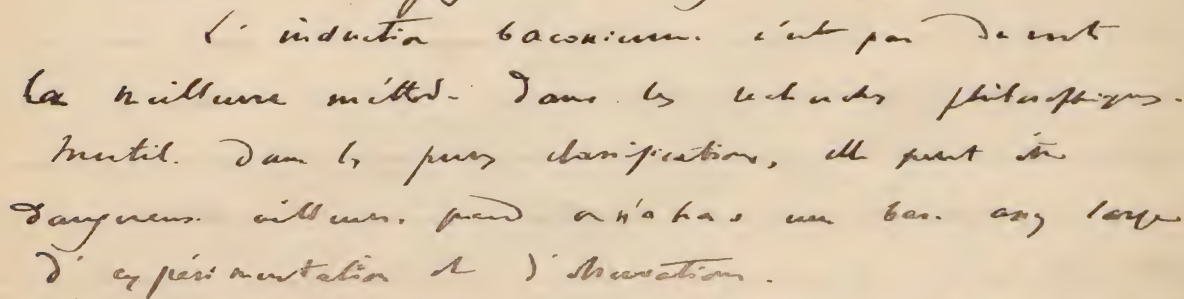 L'induction baconienne n'est pas souvent
la meilleure méthode dans les recherches philosophiques.
Inutile dans les pures classifications, elle peut être
dangereuse ailleurs quand on n'a pas une base assez large
d'expérimentation et d'observations.